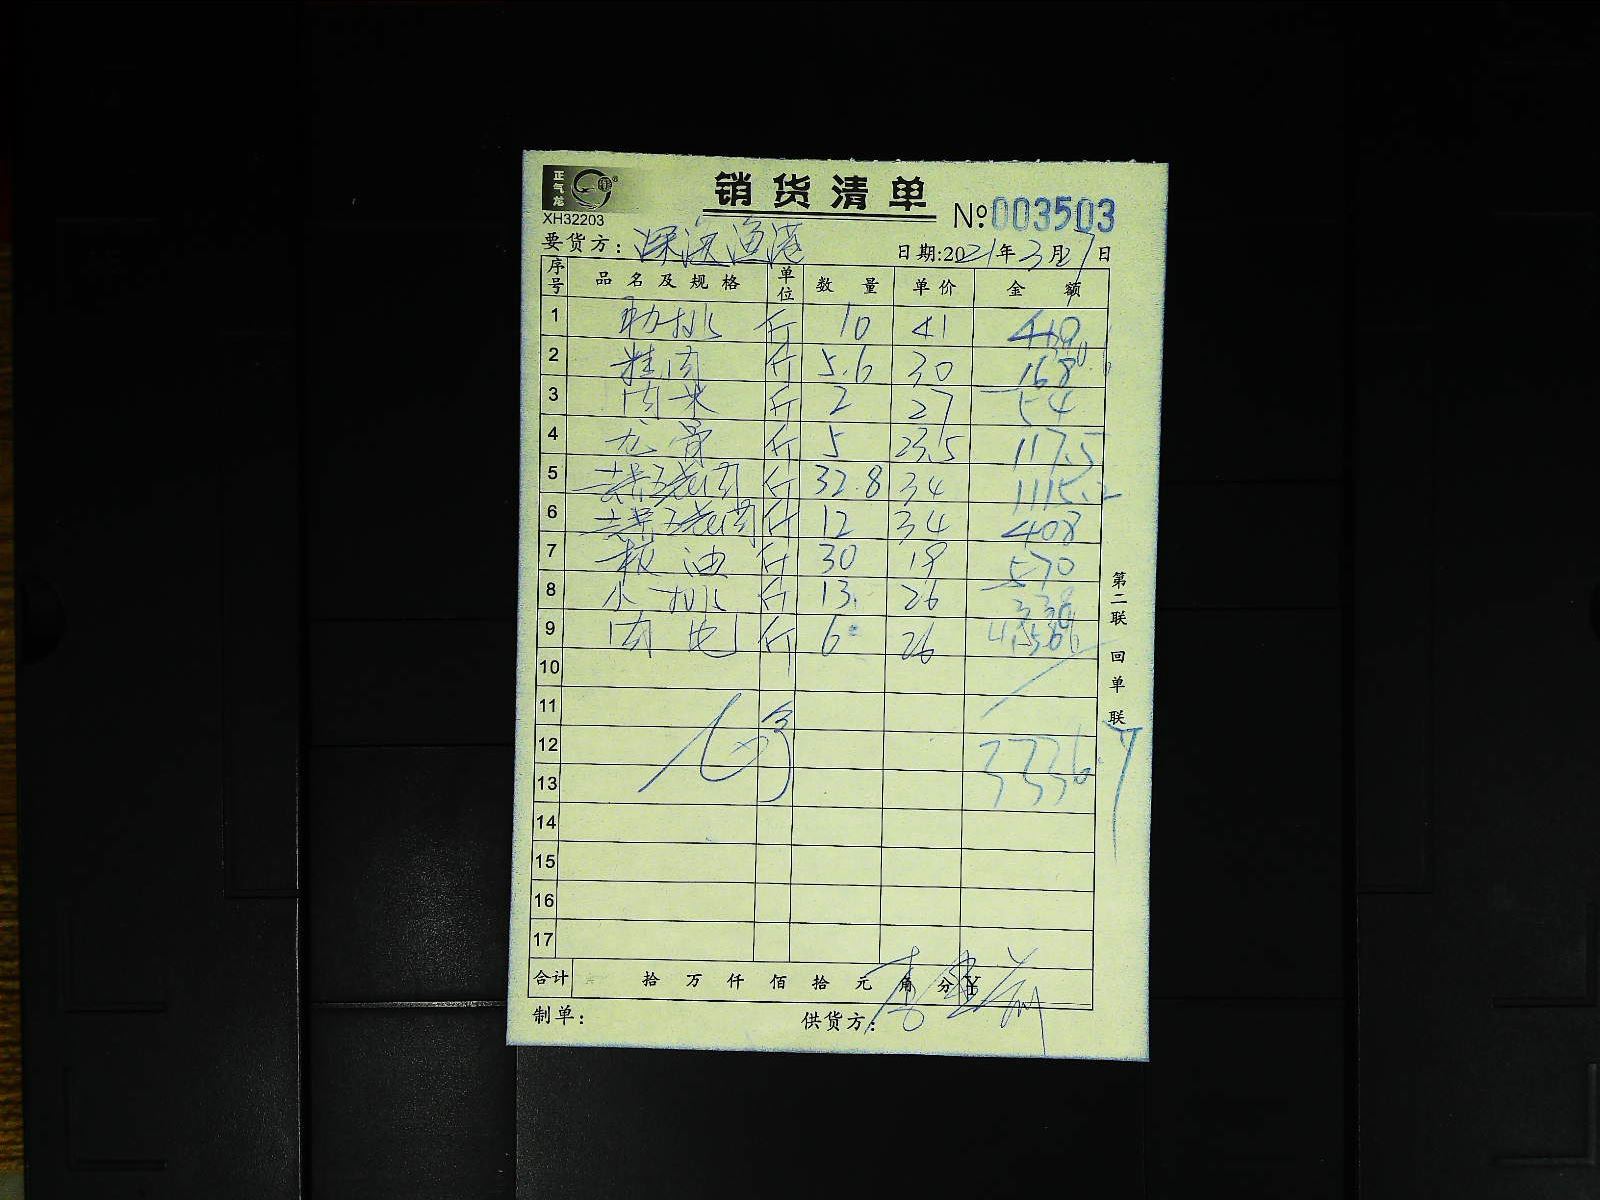 正气龙
XH32203
销货清单
№003503
要货方: 深海渔港 日期:2021年3月27日
序号 品名及规格 单位 数量 单价 金额
1 肋排 斤 10 41 410
2 精肉 斤 5.6 30 168
3 肉末 斤 2 27 54
4 龙骨 斤 5 23.5 117.5
5 去栗五花肉 斤 32.8 34 1115.2
6 去栗五花肉 斤 12 34 408
7 板油 斤 30 19 570
8 小排 斤 13 26 338
9 肉 斤 6 26
10
11
12 3336.7
13
14
15
16
17
合计 拾 万 仟 佰 拾 元 角 分 ¥
制单: 供货方:
第二联 回单联